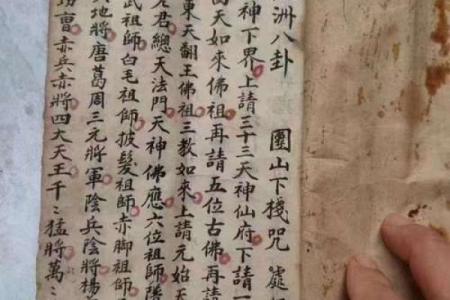 洲八卦
團山下棧咒
神下界上請三十三天神仙府下請一
當天如來佛祖再請五位古佛再請
東天翻王佛祖三教如來上請元始天
老君總天法門天神佛應六位祖師
武祖師白毛祖師披髮祖師赤脚祖師
地將唐葛周三元將軍陰兵陰將楊
功曹赤兵赤將四大天王千〻猛將萬〻